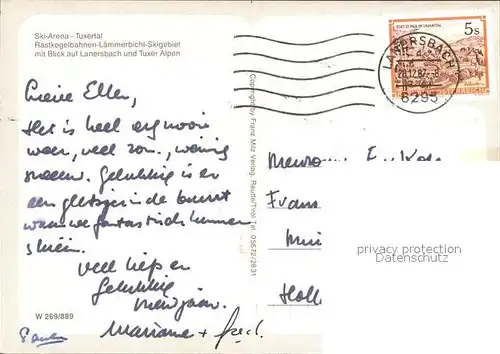 Ski-Arena - Tuxertal
Rastkogelbahnen-Lämmerbichl-Skigebiet
mit Blick auf Lanersbach und Tuxer Alpen
Lieve Ellen,
Het is heel erg mooi
weer, veel zon., weinig
sneeuw. Gelukkig is er
een gletsjer in de buurt
waar we fantastisch kunnen
skiën.
Veel liefs en
Gelukkig
nieuwjaar.
Marianne + Fred.
W 269/889
Copyright by Franz Milz Verlag, Reutte/Tirol Tel. 05672/2831
STIFT ST. PAUL IM LAVANTTAL
5s
LANERSBACH
28.12.87-8
6295
Mevrouw
Frans
Holl
privacy protection
Datenschutz